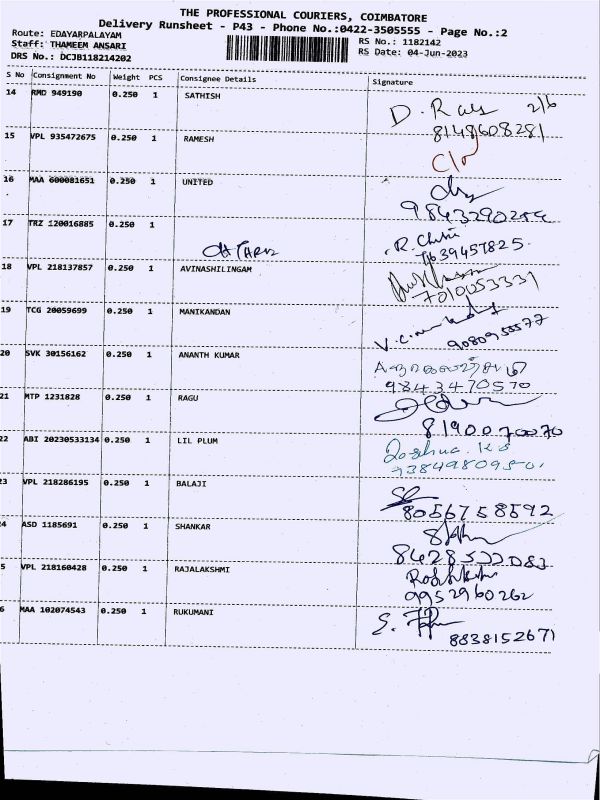 THE PROFESSIONAL COURIERS, COIMBATORE
Delivery Runsheet - P43 - Phone No.:0422-3505555 - Page No.:2
Route: EDAYARPALAYAM
Staff: THAMEEM ANSARI
DRS No.: DCJB118214202
RS No.: 1182142
RS Date: 04-Jun-2023
S No Consignment No Weight PCS Consignee Details Signature
14 RMD 949190 0.250 1 SATHISH D. 2/6
8148608281
15 VPL 935472675 0.250 1 RAMESH
C/o
16 MAA 600081651 0.250 1 UNITED
17 TRZ 120016885 0.250 1 R.
7639457825
18 VPL 218137857 0.250 1 AVINASHILINGAM
7010053331
19 TCG 20059699 0.250 1 MANIKANDAN
9080955577
20 SVK 30156162 0.250 1 ANANTH KUMAR
9843470570
21 MTP 1231828 0.250 1 RAGU
8190070070
22 ABI 20230533134 0.250 1 LIL PLUM Joshua. K S
23 VPL 218286195 0.250 1 BALAJI
8056758592
4 ASD 1185691 0.250 1 SHANKAR
8428522083
5 VPL 218160428 0.250 1 RAJALAKSHMI
9952960262
6 MAA 102074543 0.250 1 RUKUMANI S.
8838152671